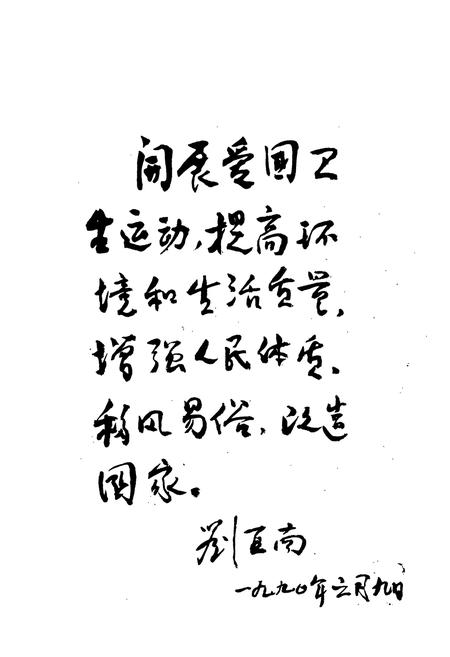 開展爱国卫
生运动,提高环
境和生活质量,
增强人民体质、
移风易俗,改造
国家。
劉宜南
一九九〇年二月九日